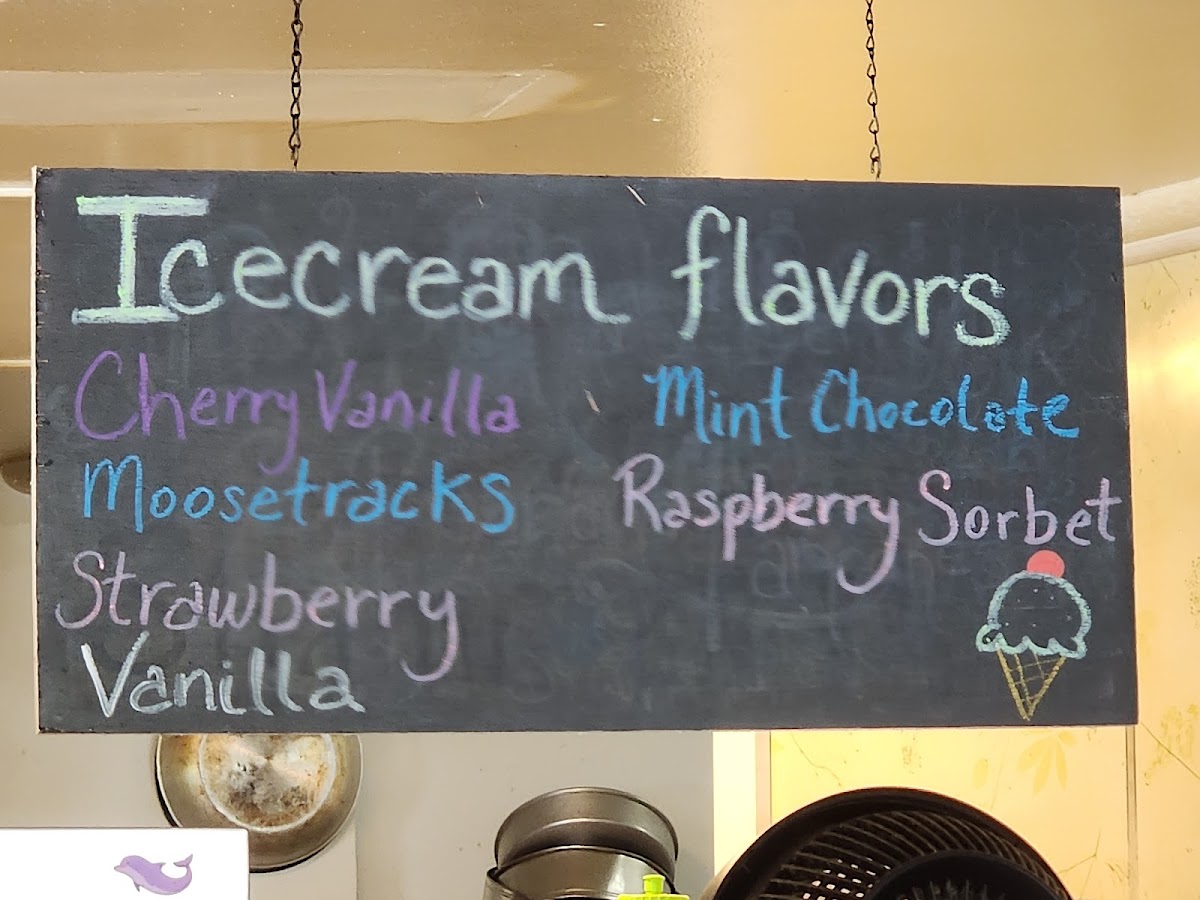 Icecream flavors
Cherry Vanilla
Moosetracks
Strawberry
Vanilla
Mint Chocolate
Raspberry Sorbet